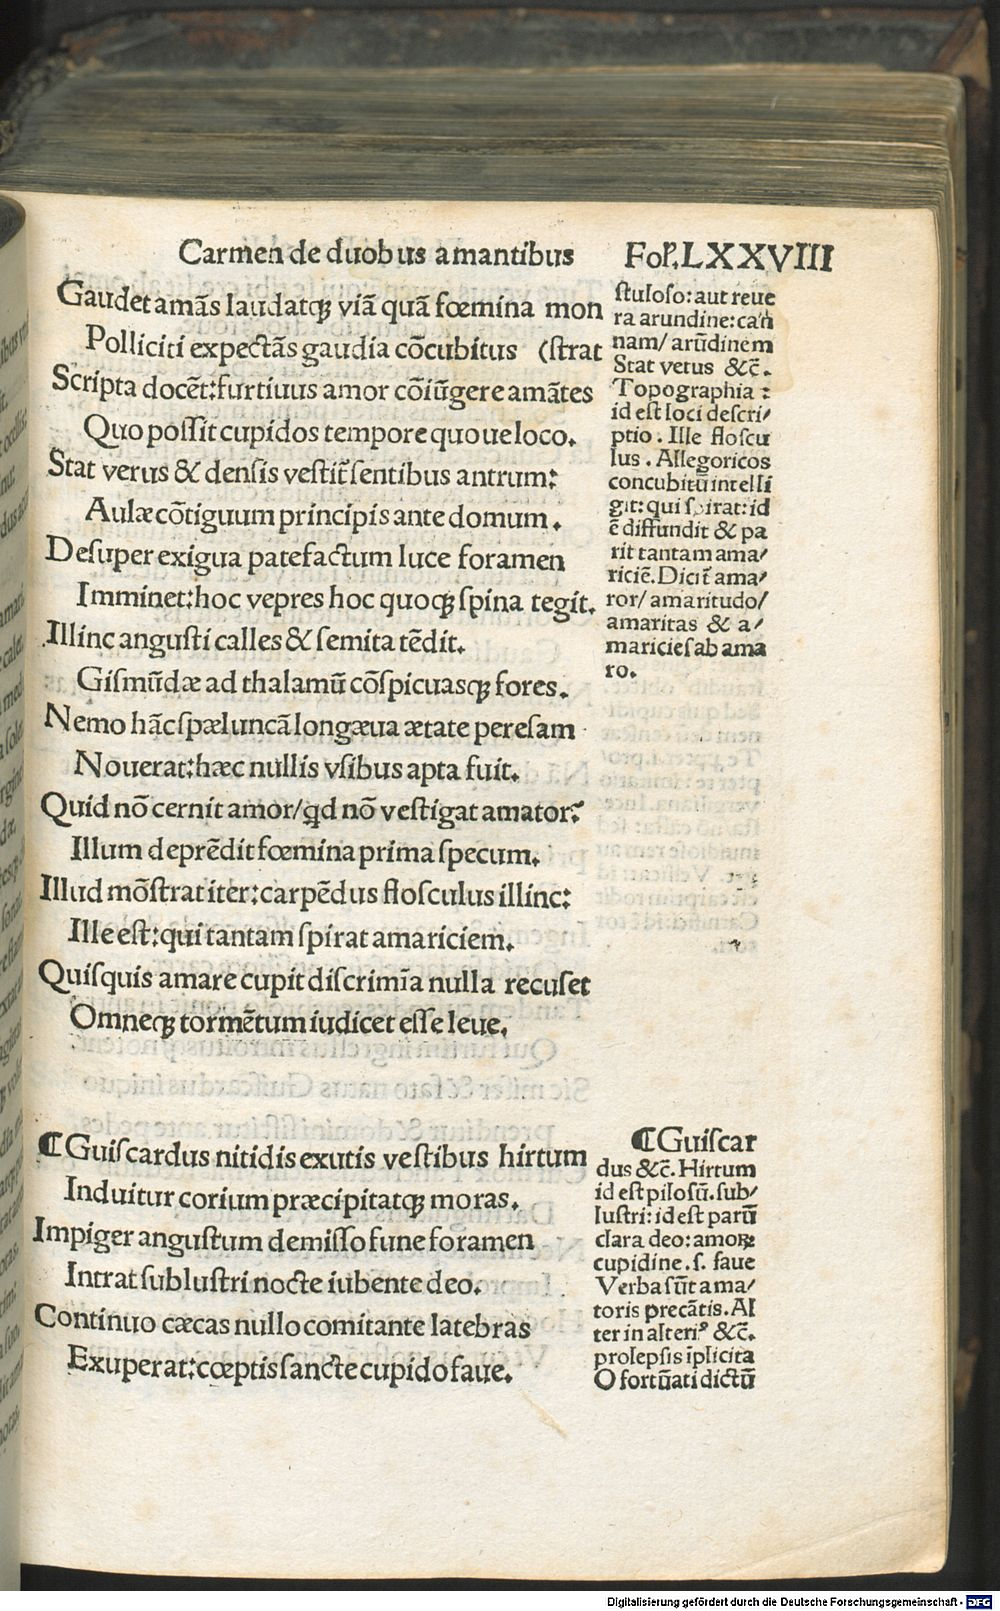 Carmen de duobus amantibus Fol. LXXVIII
Gaudet amãs laudatqꝫ viã quã fœmina mon
Polliciti expectãs gaudia cõcubitus (ſtrat
Scripta docẽt: furtiuus amor cõiũgere amãtes
Quo poſſit cupidos tempore quo ue loco.
Stat verus & denſis veſtit᷑ ſentibus antrum:
Aulæ cõtiguum principis ante domum.
Deſuper exigua patefactum luce foramen
Imminet: hoc vepres hoc quoqꝫ ſpina tegit.
Illinc anguſti calles & ſemita tẽdit.
Giſmũdæ ad thalamũ cõſpicuasqꝫ fores.
Nemo hãc ſpæluncã longæua ætate pereſam
Nouerat: hæc nullis vſibus apta fuit.
Quid nõ cernit amor/ qd nõ veſtigat amator?
Illum deprẽdit fœmina prima ſpecum.
Illud mõſtrat iter: carpẽdus floſculus illinc:
Ille eſt: qui tantam ſpirat amariciem.
Quiſquis amare cupit diſcrimĩa nulla recuſet
Omneqꝫ tormẽtum iudicet eſſe leue.
¶ Guiſcardus nitidis exutis veſtibus hirtum
Induitur corium præcipitatqꝫ moras.
Impiger anguſtum demiſſo fune foramen
Intrat ſubluſtri nocte iubente deo.
Continuo cæcas nullo comitante latebras
Exuperat: cœptis ſancte cupido faue.
ſtuloſo: aut reue
ra arundine: cañ
nam/ arũdinem
Stat vetus &c̃.
Topographia:
id eſt loci deſcri/
ptio. Ille floſcu
lus. Allegoricos
concubitũ intelli
git: qui ſpirat: id
ẽ diffundit & pa
rit tantam ama/
riciẽ. Dicit᷑ ama/
ror/ amaritudo/
amaritas & a/
mariciesab ama
ro.
¶ Guiſcar
dus &c̃. Hirtum
id eſt piloſũ. ſub/
luſtri: id eſt parũ
clara deo: amoꝝ
cupidine. ſ. faue
Verba ſũt ama/
toris precãtis. Al
ter in alteriꝰ &c̃.
prolepſis ĩplicita
O fortũati dictũ
Digitalisierung gefördert durch die Deutsche Forschungsgemeinschaft - DFG